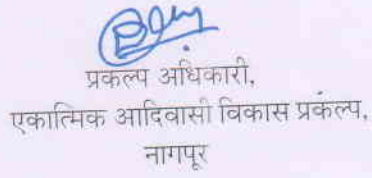 प्रकल्प अधिकारी,
एकात्मिक आदिवासी विकास प्रकल्प,
नागपूर